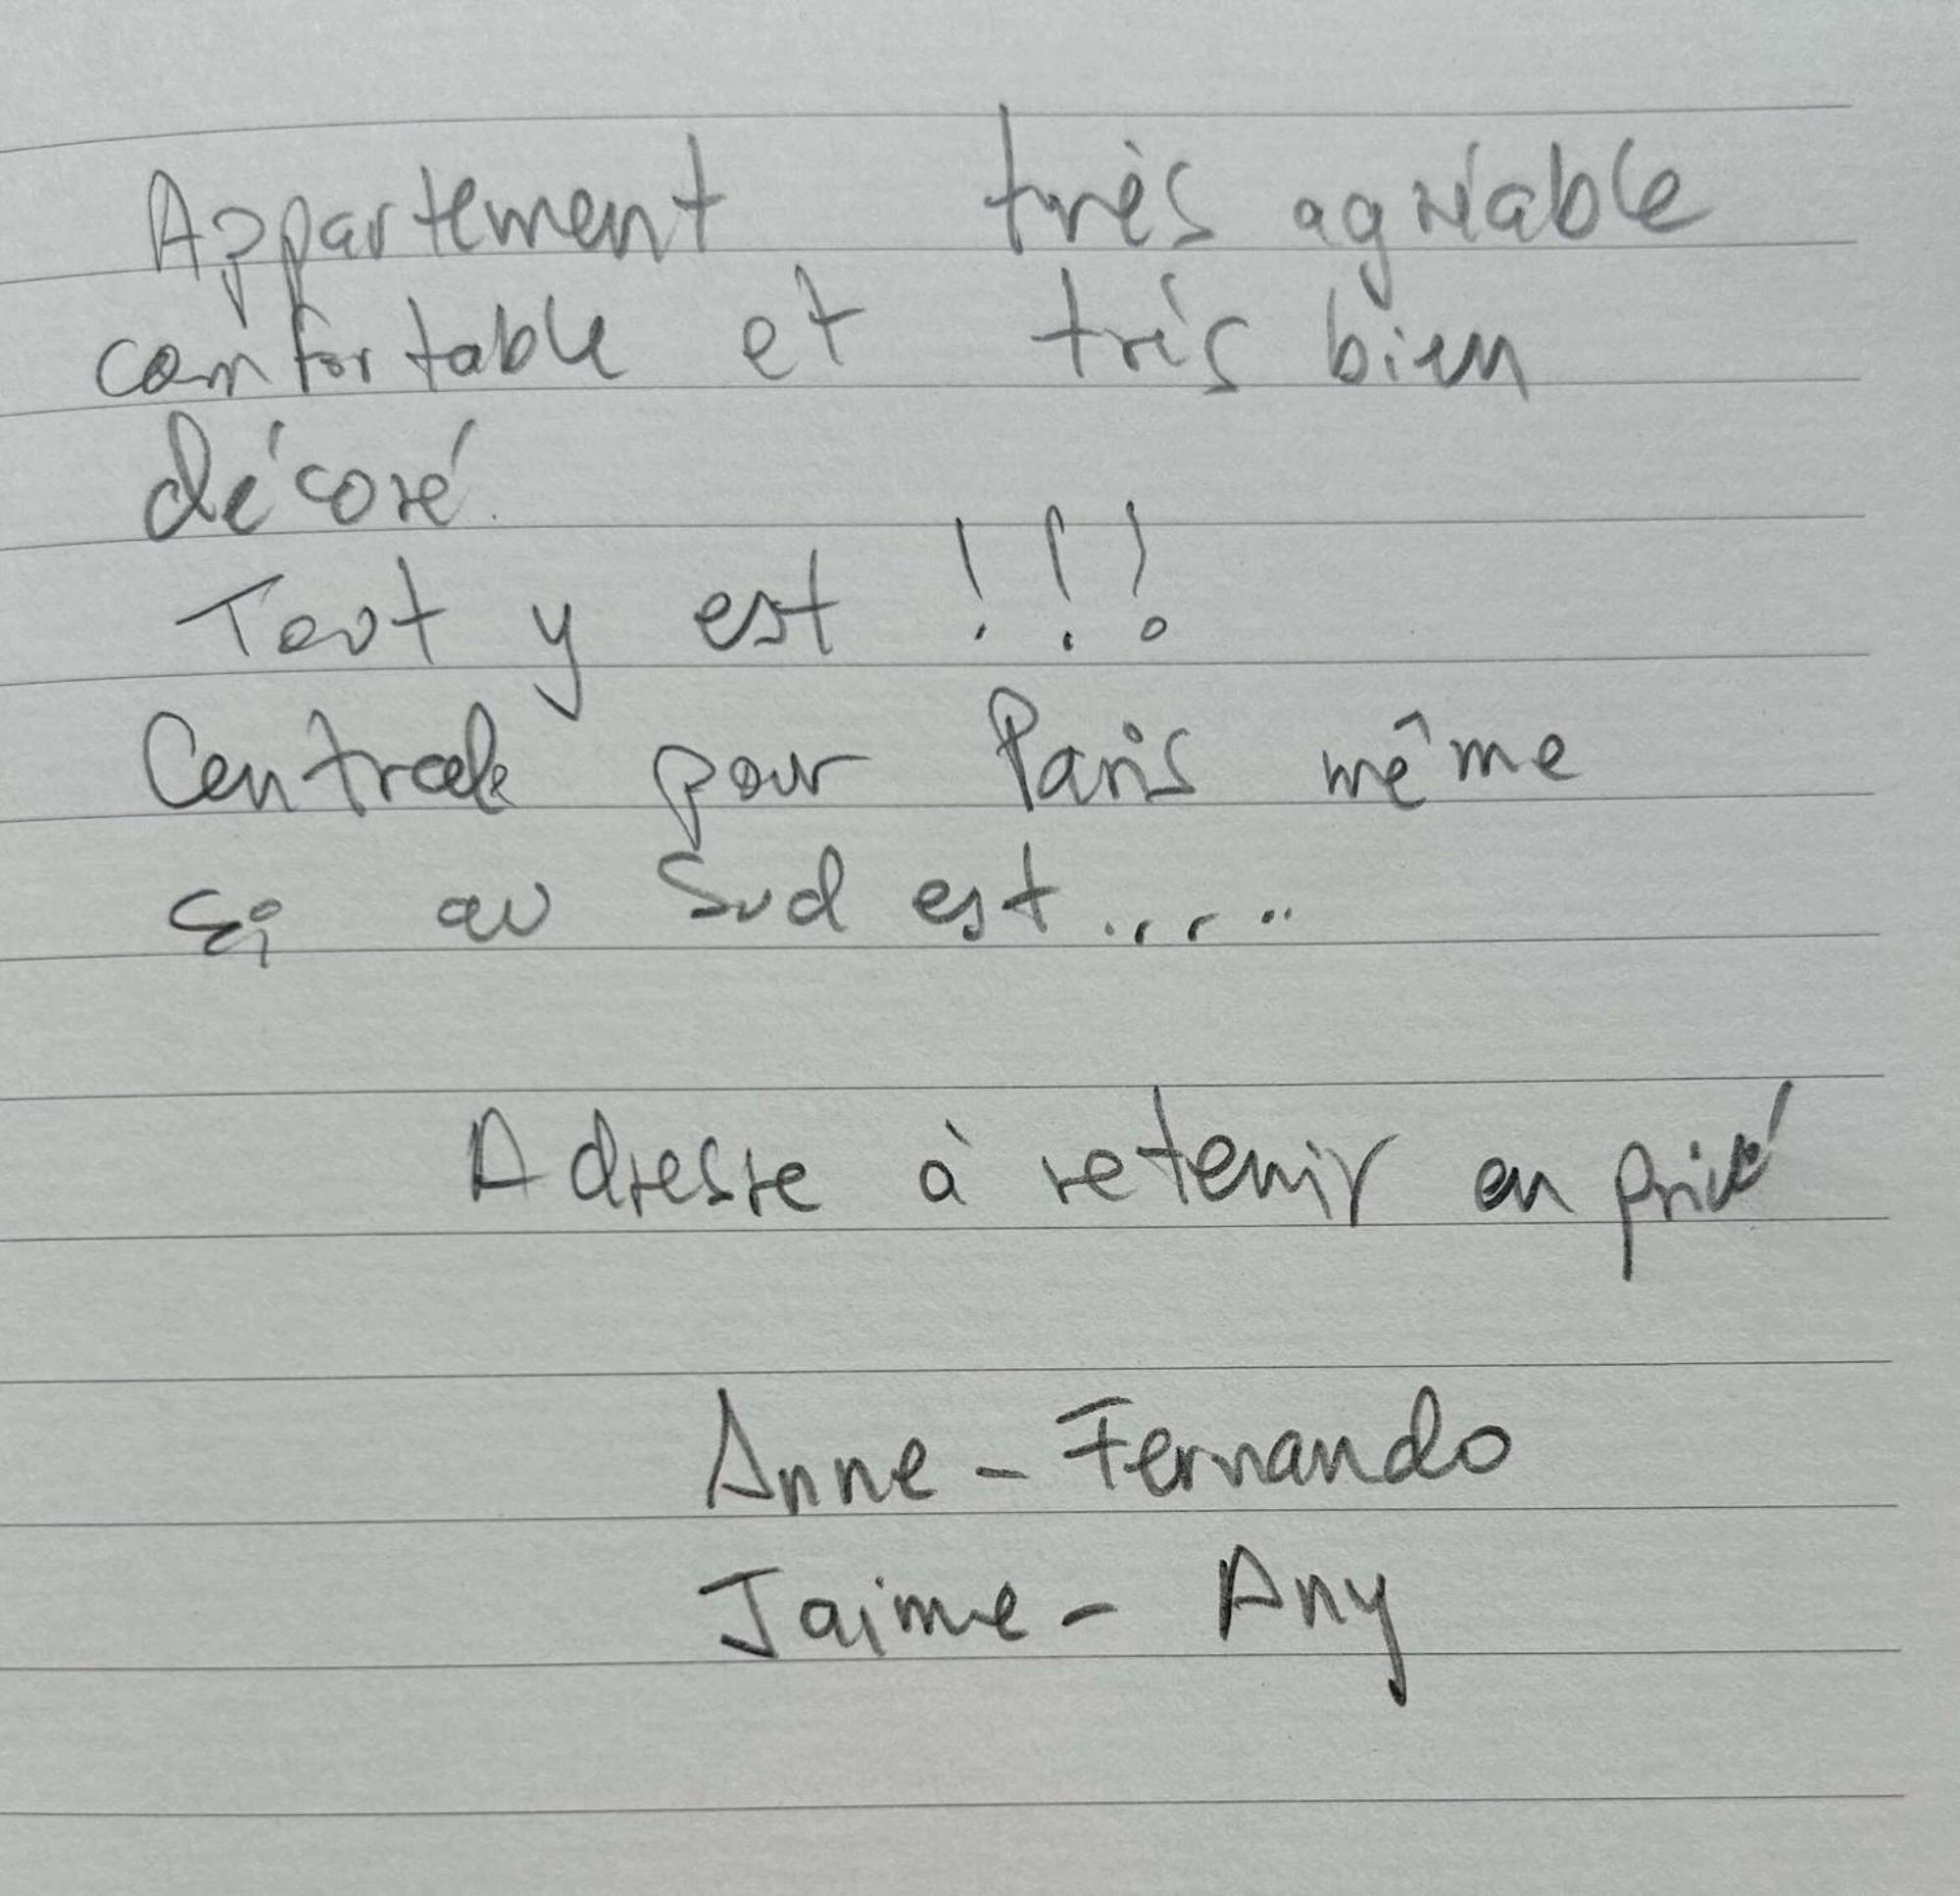 Appartement très agréable
confortable et très bien
décoré.
Tout y est !!!
Centrale pour Paris même
si au Sud est.....
Adresse à retenir en privé
Anne - Fernando
Jaime - Any